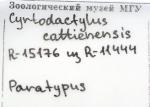 Зоологический музей МГУ
Cyrtodactylus
cattienensis
R-15176 из R-11444
Paratypus